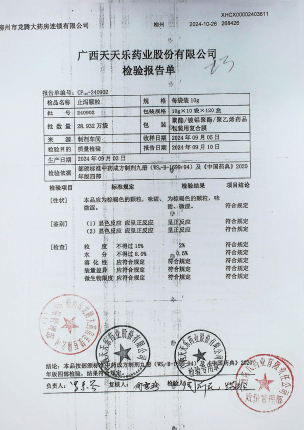 柳州市龙腾大药房连锁有限公司 柳州 2024-10-26 268428
XHCX0002403611
广西天天乐药业股份有限公司
检验报告单
报告单编号：
检品名称 止泻颗粒 规格 每袋装10g
批号 240902 包装规格 10g×10袋×120盒
批量 28.932万袋 包装 聚酯/镀铝聚酯/聚乙烯药品包装用复合膜
来源 制剂车间 2024年09月05日
检验目的 质量检验 报告日期 2024年09月10日
生产日期 2024年09月03日
检验依据 部颁标准中药成方制剂九册（WS₃-B-1699-94）及《中国药典》2020年版四部
检验项目 标准规定 检验结果 项目结论
[性状] 本品应为棕褐色的颗粒，味甜、微涩。 为棕褐色的颗粒，味甜、微涩。 符合规定
[鉴别] （1）显色反应 应呈正反应 呈正反应 符合规定
（2）显色反应 应呈正反应 呈正反应 符合规定
[检查]
粒度 不得过15% 2% 符合规定
水分 不得过8.0% 符合规定
溶化性 应符合规定 符合规定 符合规定
装量差异 应符合规定 符合规定 符合规定
微生物限度 应符合规定 符合规定 符合规定
结论：本品按部颁标准中药成方制剂九册 及《中国药典》2020年版四部检验，结果符合规定。
负责人： 复核人： 检验人：